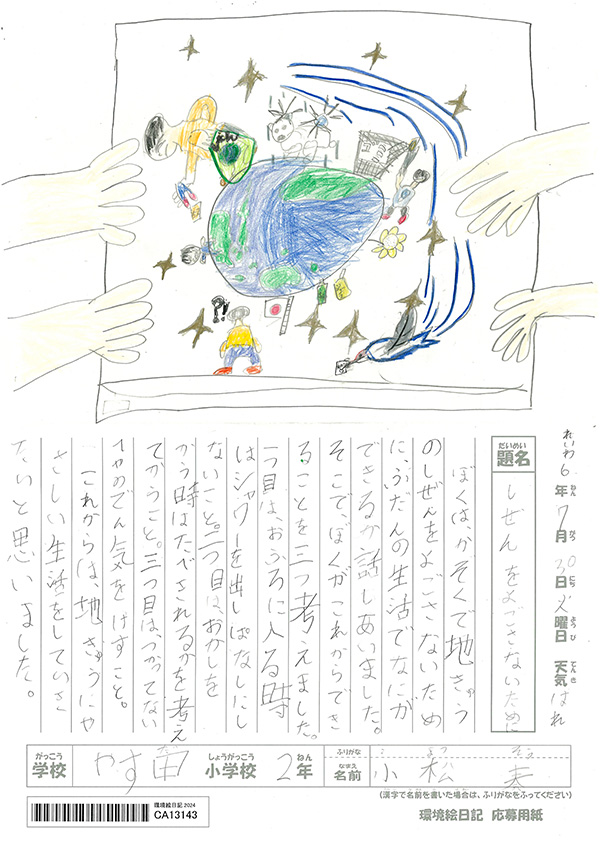 れいわ6年7月30日火曜日 天気はれ
題名 しぜんをよごさないために
ぼくはかぞくで地きゅう
のしぜんをよごさないため
に、ふだんの生活でなにが
できるか話しあいました。
そこで、ぼくがこれからでき
ることを三つ考えました。
一つ目は、おふろに入る時
はシャワーを出しぱなしにし
ないこと。二つ目は、おかしを
かう時はたべきれるかを考え
てかうこと。三つ目は、つかってない
へやのでん気をけすこと。
これからは、地きゅうにや
さしい生活をしていき
たいと思いました。
がっこう しょうがっこう ねん ふりがな こ まつ そう
学校 やす田 小学校 2年 なまえ 名前 小松 奏
(漢字で名前を書いた場合は、ふりがなをふってください)
環境絵日記2024
CA13143
環境絵日記 応募用紙